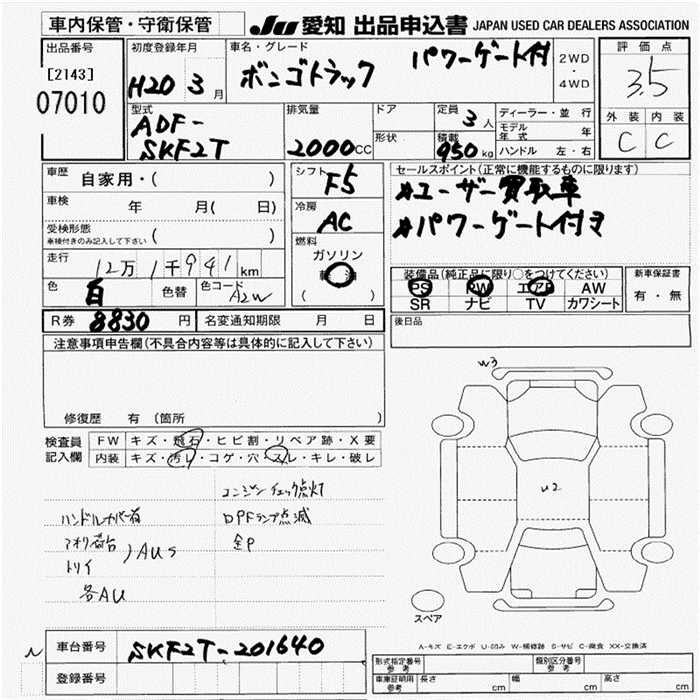 車内保管・守衛保管 JU 愛知 出品申込書 JAPAN USED CAR DEALERS ASSOCIATION
出品番号
[2143]
07010
初度登録年月
H20 3月
車名・グレード
ボンゴトラック パワーゲート付
2WD
・
4WD
評価点
3.5
外装 内装
C C
型式
ADF-
SKF2T
排気量
2000CC
ドア
形状
定員 3人
積載 950kg
ディーラー・並行
モデル年式 年
ハンドル 左・右
車歴 自家用・( )
車検 年 月( 日)
受検形態
車検付きのみ記入して下さい ( )
走行 12万1千941km
色 白 色替 色コード A2W
シフト F5
冷房 AC
燃料
ガソリン
軽油
( )
セールスポイント(正常に機能するものに限ります)
#ユーザー買取車
#パワーゲート付き
装備品(純正品に限り○をつけてください)
PS PW エアB AW
SR ナビ TV カワシート
新車保証書
有・無
R券 8830円 名変通知期限 月 日
後日品
注意事項申告欄(不具合内容等は具体的に記入して下さい)
修復歴 有 (箇所 )
検査員記入欄
FW キズ・飛石・ヒビ割・リペア跡・X要
内装 キズ・汚レ・コゲ・穴・スレ・キレ・破レ
エンジンチェック点灯
ハンドルカバー有 DPFランプ点滅
アオリ荷台 金P
トリイ
AUS
各AU
W3
U2
スペア
A-キズ E-エクボ U-凹み W-補修跡 S-サビ C-腐食 XX-交換済
車台番号 SKF2T-201640
登録番号
形式指定番号
参考
類別区分番号
参考
車庫証明用
参考
長さ cm 幅 cm 高さ cm